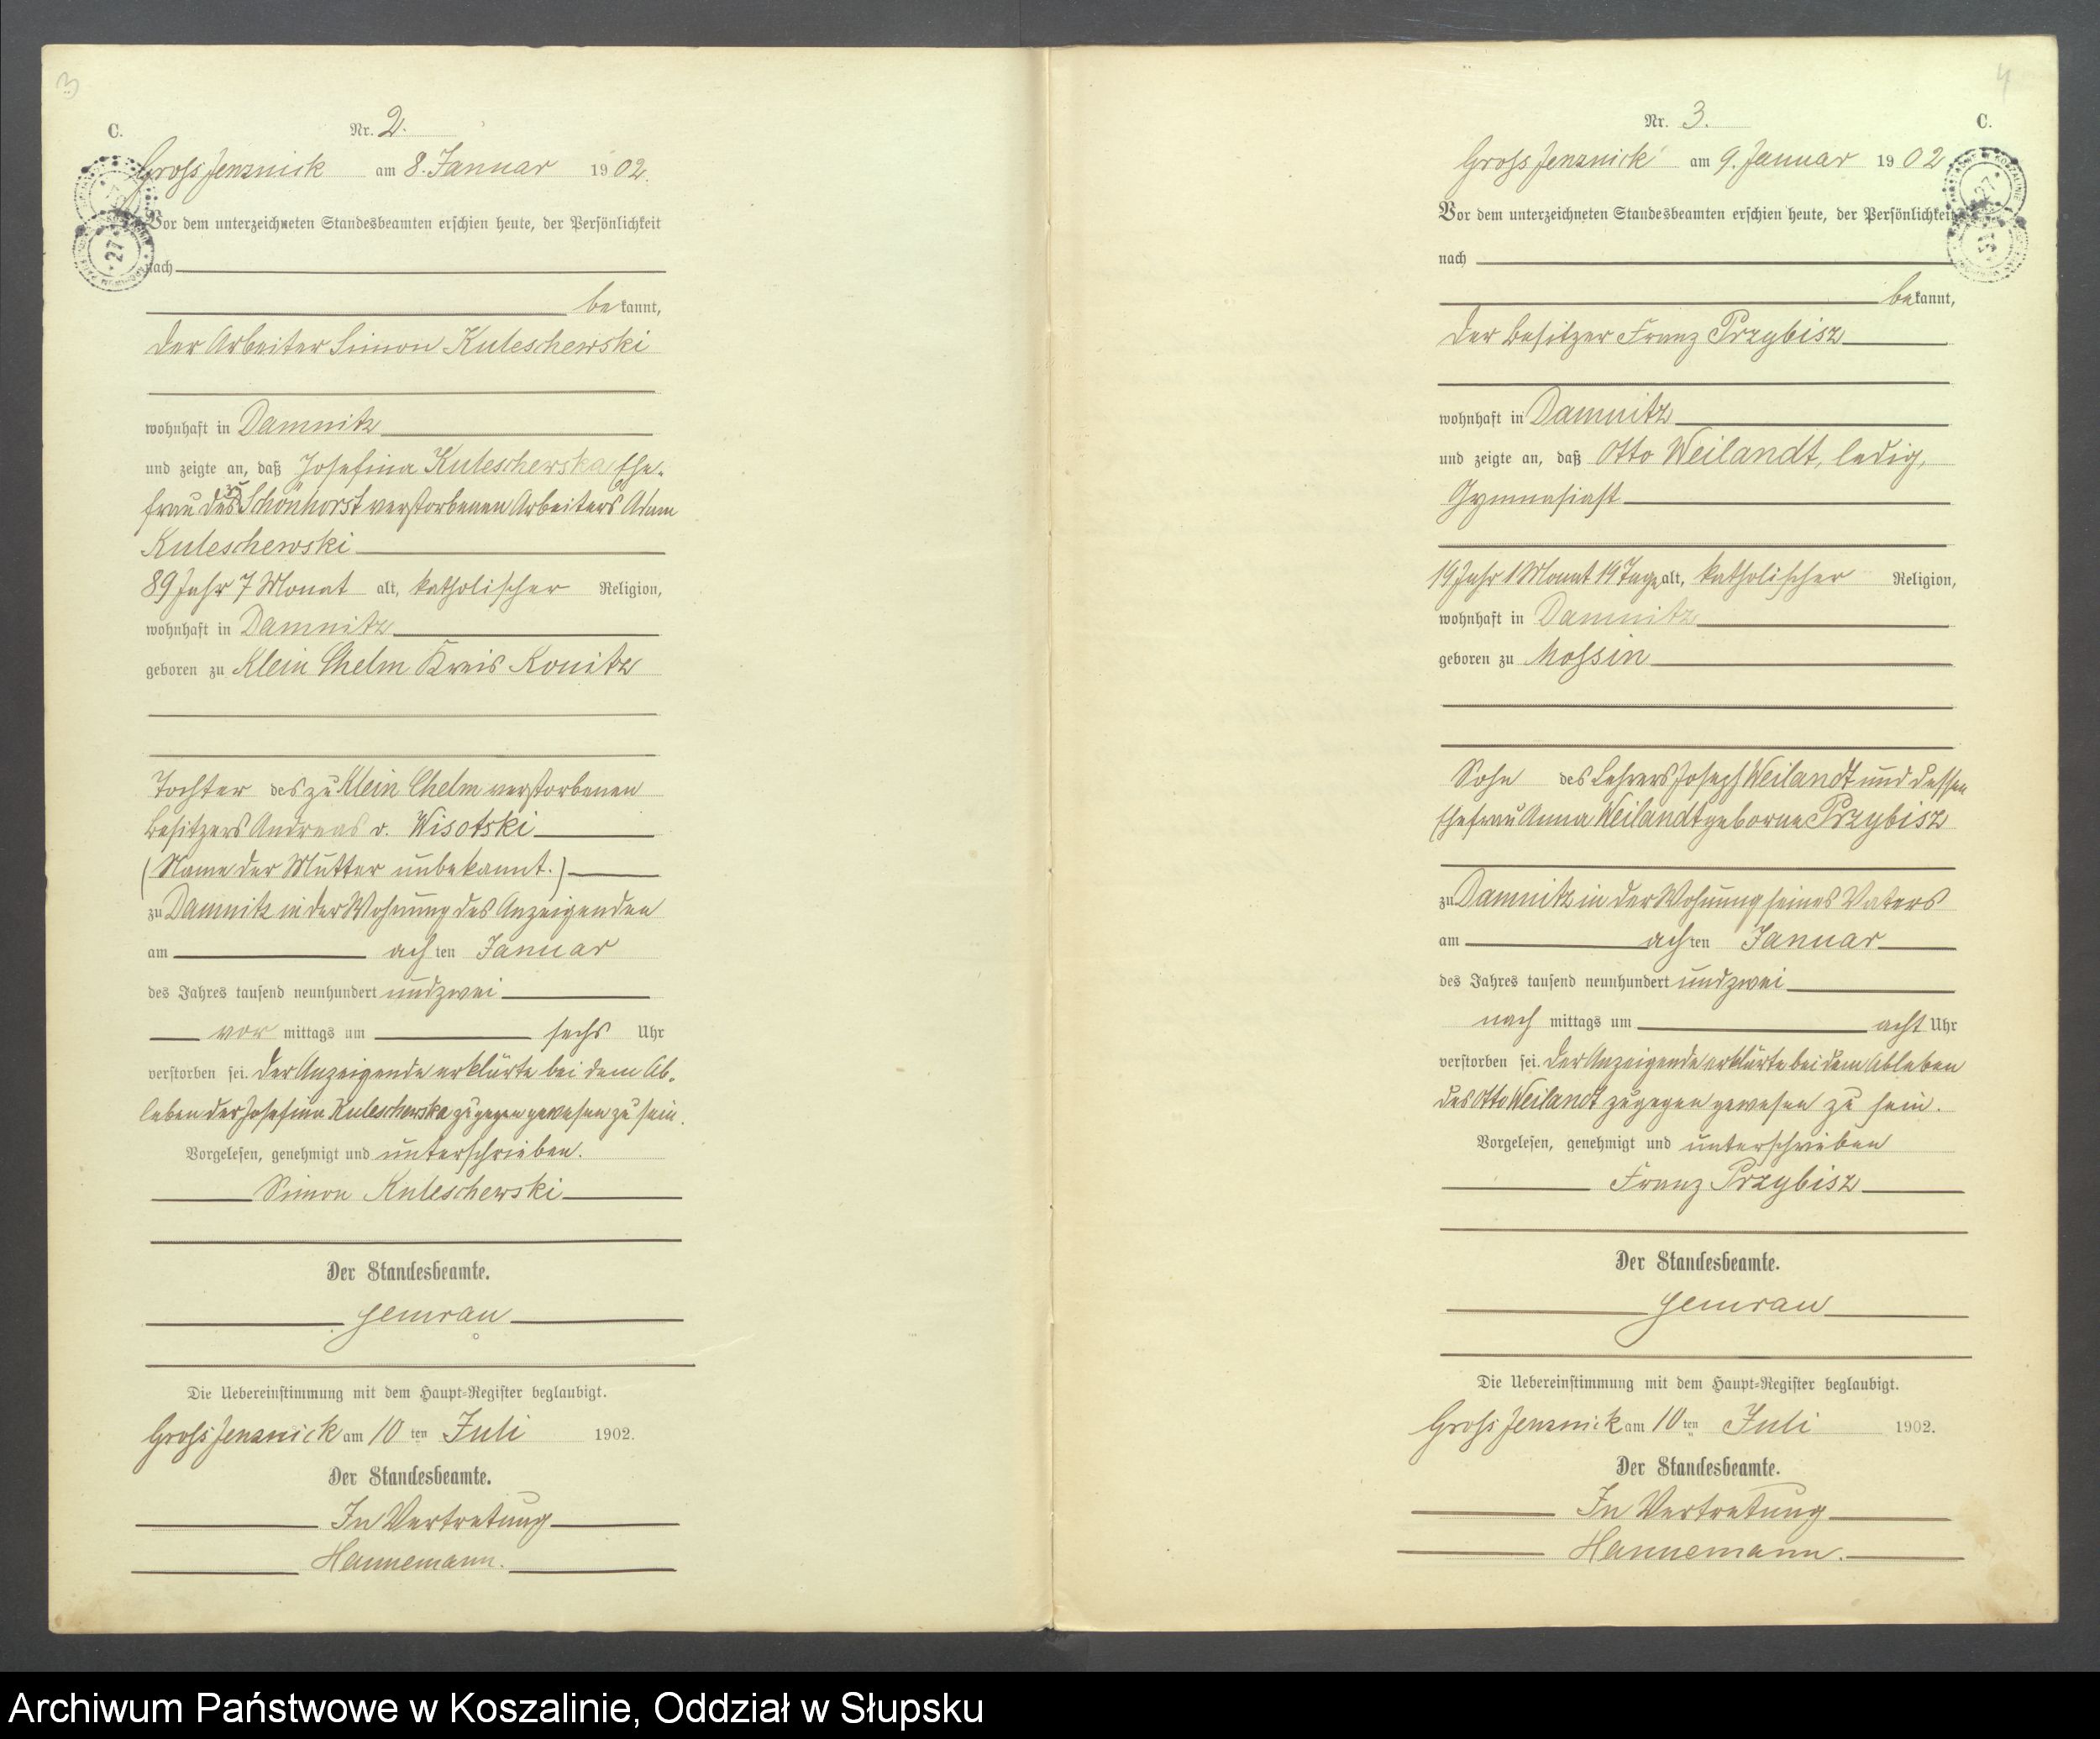 3
C.
Nr. 2.
Gross Jenznick am 8. Januar 1902.
Vor dem unterzeichneten Standesbeamten erschien heute, der Persönlichkeit
nach
bekannt,
der Arbeiter Simon Kuleschewski
wohnhaft in Damnitz
und zeigte an, daß Josefina Kuleschewska Ehe-
frau des zu Schönhorst verstorbenen Arbeiters Adam
Kuleschewski
89 Jahr 7 Monat alt, katholischer Religion,
wohnhaft in Damnitz
geboren zu Klein Chelm Kreis Konitz
Tochter des zu Klein Chelm verstorbenen
Besitzers Andreas v. Wisotski
(Name der Mutter unbekannt.)
zu Damnitz in der Wohnung des Anzeigenden
am achten Januar
des Jahres tausend neunhundert und zwei
vor mittags um sechs Uhr
verstorben sei. Der Anzeigende erklärte bei dem Ab-
leben der Josefina Kuleschewska zugegen gewesen zu sein.
Vorgelesen, genehmigt und unterschrieben.
Simon Kuleschewski
Der Standesbeamte.
Gemrau
Die Uebereinstimmung mit dem Haupt-Register beglaubigt.
Gross Jenznick am 10 ten Juli 1902.
Der Standesbeamte.
In Vertretung
Hannemann.
4
Nr. 3.
C.
Gross Jenznick am 9. Januar 1902
Vor dem unterzeichneten Standesbeamten erschien heute, der Persönlichkeit
nach
bekannt,
der Besitzer Franz Przybisz
wohnhaft in Damnitz
und zeigte an, daß Otto Weilandt, ledig,
Gymnasiast
19 Jahr 1 Monat 19 Tage alt, katholischer Religion,
wohnhaft in Damnitz
geboren zu Mossin
Sohn des Lehrers Joseph Weilandt und dessen
Ehefrau Anna Weilandt geborne Przybisz
zu Damnitz in der Wohnung seines Vaters
am achten Januar
des Jahres tausend neunhundert und zwei
nach mittags um acht Uhr
verstorben sei. Der Anzeigende erklärte bei dem Ableben
des Otto Weilandt zugegen gewesen zu sein.
Vorgelesen, genehmigt und unterschrieben
Franz Przybisz
Der Standesbeamte.
Gemrau
Die Uebereinstimmung mit dem Haupt-Register beglaubigt.
Gross Jenznick am 10 ten Juli 1902.
Der Standesbeamte.
In Vertretung
Hannemann.
Archiwum Państwowe w Koszalinie, Oddział w Słupsku